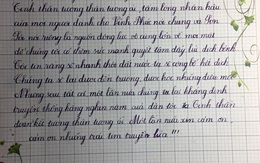 Tinh thần tương thân tương ái, tấm lòng nhân hậu
của mọi người dành cho Vĩnh Phúc nói chung và Sơn
Lôi nói riêng là nguồn động lực vô cùng lớn về mọi mặt
để chúng tôi có thêm sức mạnh quyết tâm đẩy lùi dịch bệnh.
Tôi tin rằng sẽ nhanh thôi đất nước ta sẽ công bố hết dịch.
Chúng ta sẽ lại được đến trường, được học những điều mới.
Nhưng sau tất cả, một lần nữa chúng ta lại khẳng định
truyền thống hàng nghìn năm của dân tộc là tinh thần
đoàn kết tương thân tương ái. Một lần nữa xin cảm ơn,
cảm ơn những trái tim truyền lửa!!!